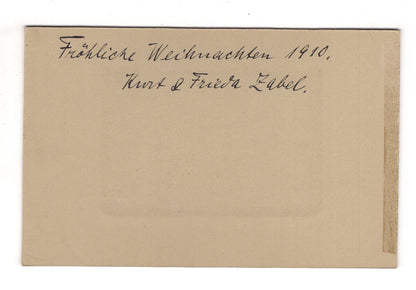 Fröhliche Weihnachten 1910.
Kurt & Frieda Zabel.